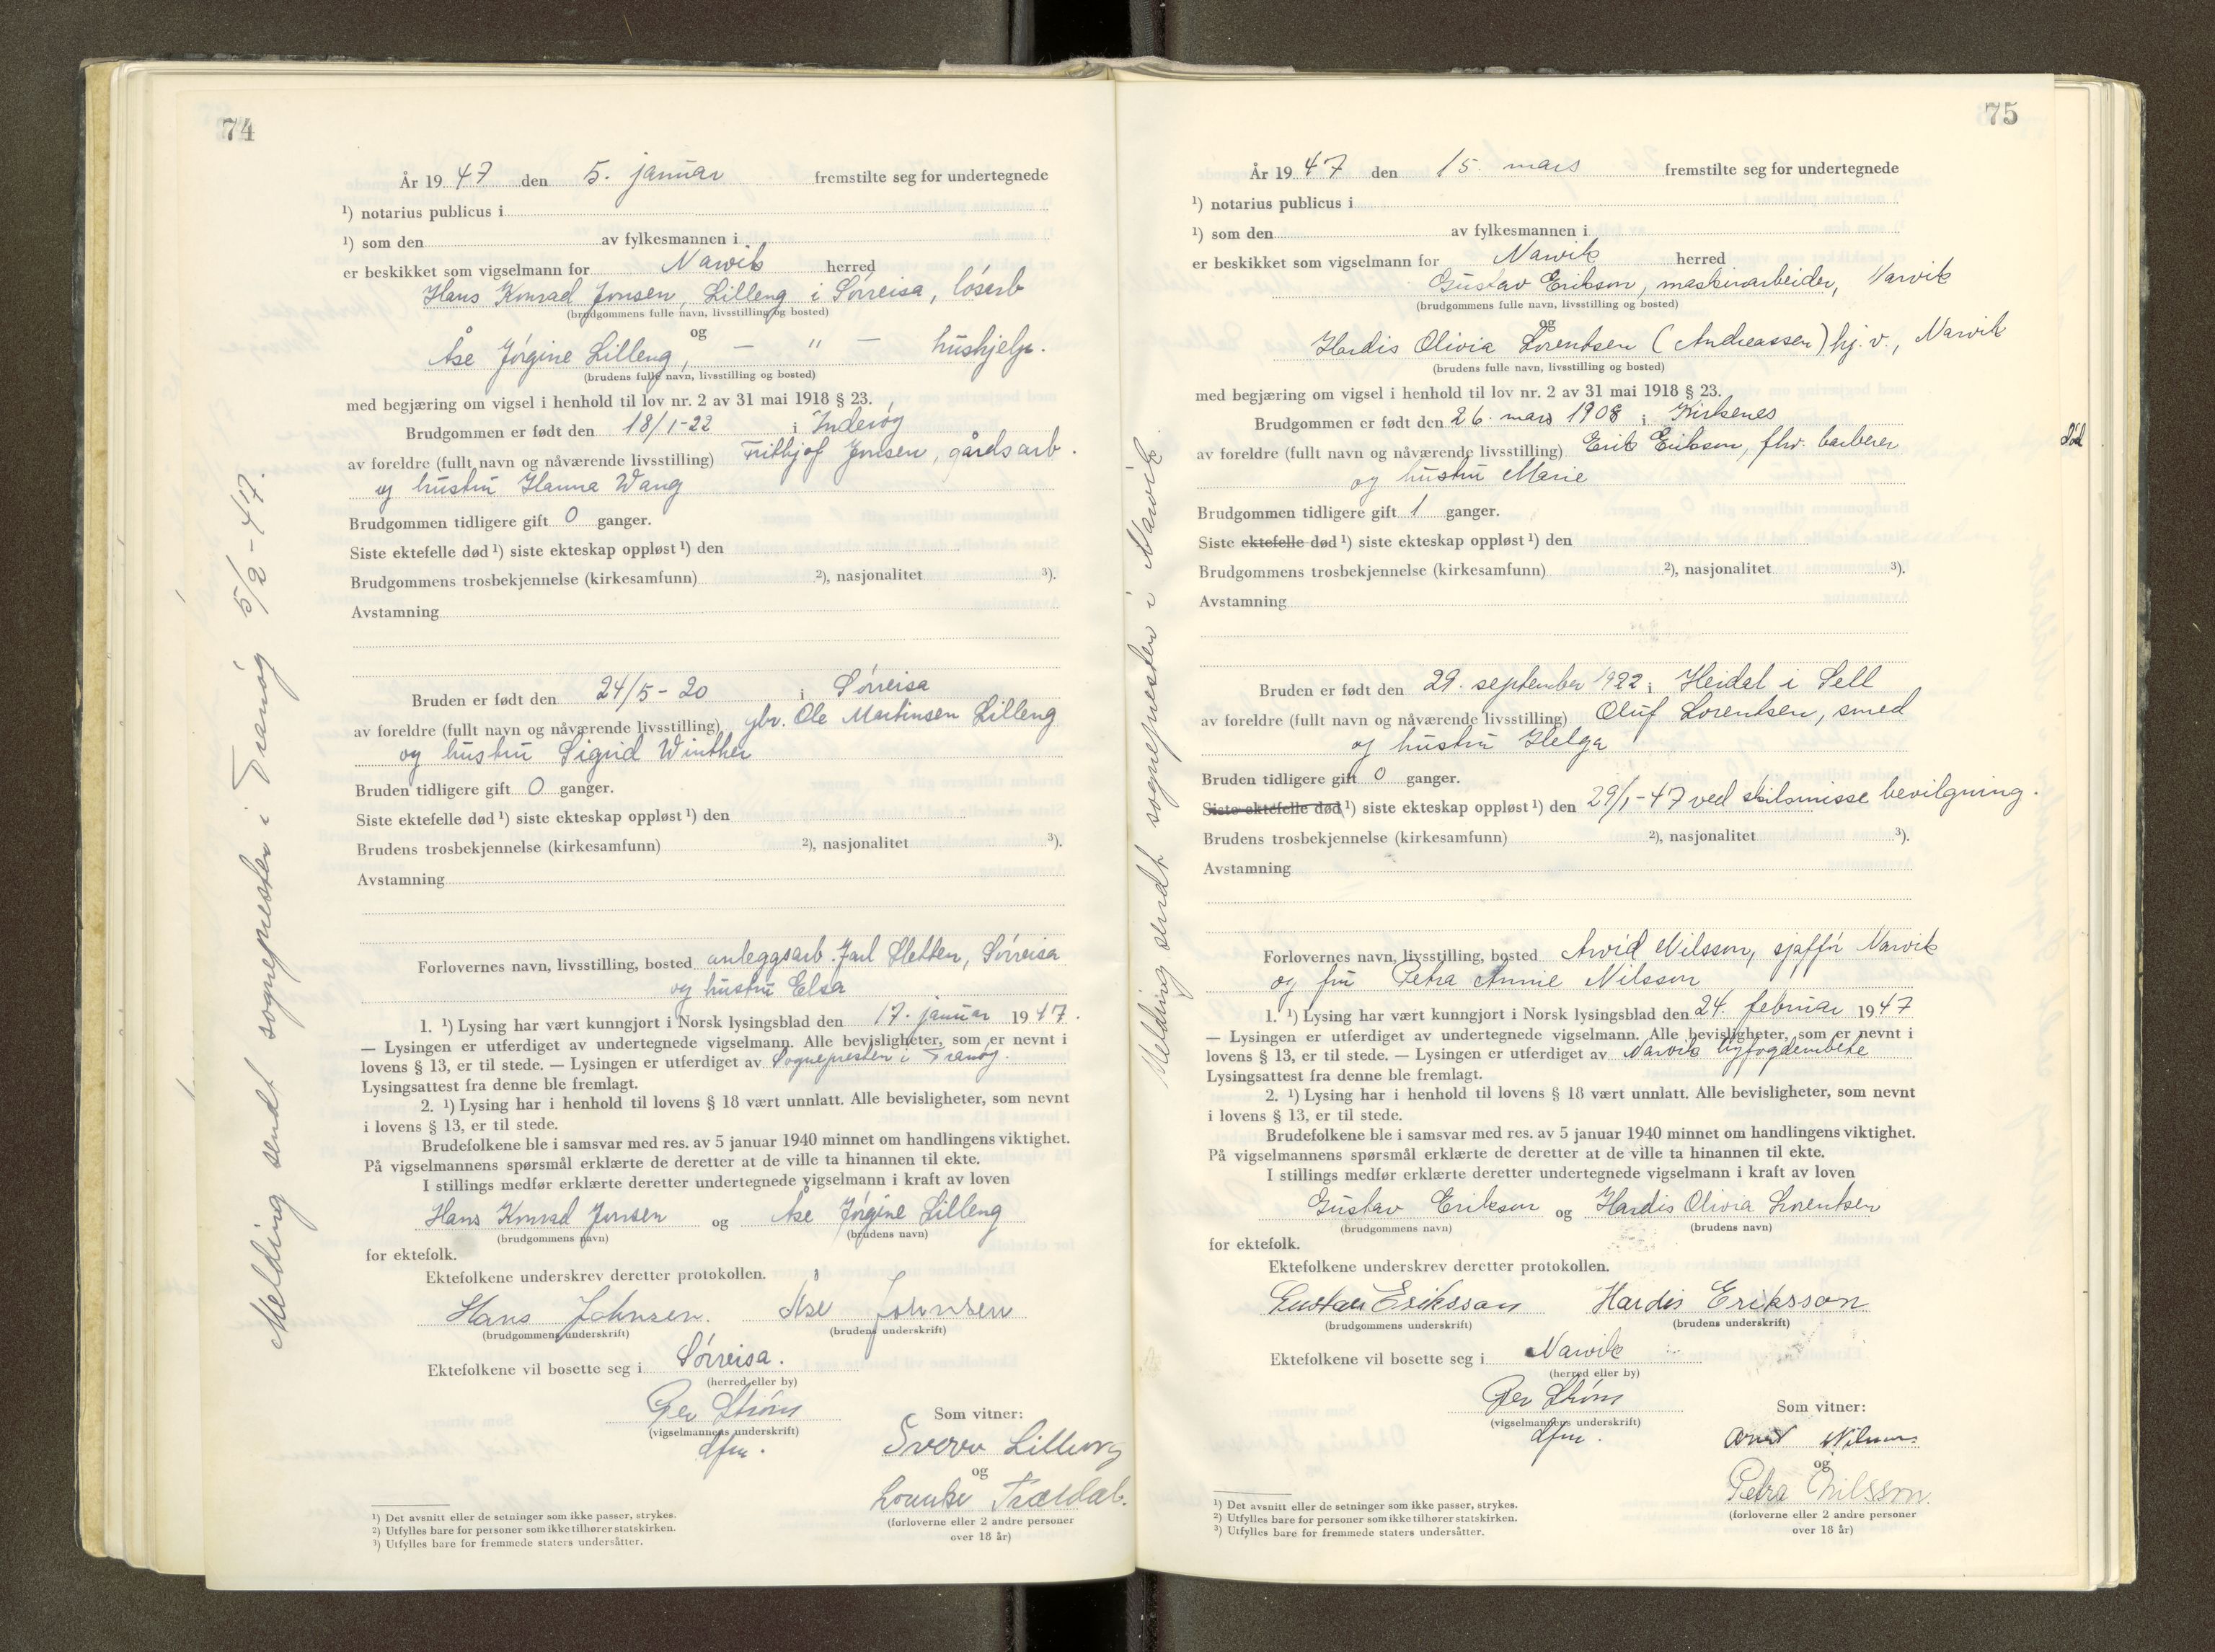 74
År 1947 den 5. januar fremstilte seg for undertegnede
¹) notarius publicus i
¹) som den av fylkesmannen i
er beskikket som vigselmann for Narvik herred
Hans Konrad Jonsen, Lilleng i Sørreisa, løsarb
(brudgommens fulle navn, livsstilling og bosted)
og
Åse Jørgine Lilleng, — " — hushjelp.
(brudens fulle navn, livsstilling og bosted)
med begjæring om vigsel i henhold til lov nr. 2 av 31 mai 1918 § 23.
Brudgommen er født den 18/1-22 i Inderøy
av foreldre (fullt navn og nåværende livsstilling) Frithjof Jonsen, gårdsarb.
og hustru Hanna Wang
Brudgommen tidligere gift 0 ganger.
Siste ektefelle død ¹) siste ekteskap oppløst ¹) den
Brudgommens trosbekjennelse (kirkesamfunn) ²), nasjonalitet ³).
Avstamning
Bruden er født den 24/5-20 i Sørreisa
av foreldre (fullt navn og nåværende livsstilling) gbr. Ole Martinsen Lilleng
og hustru Sigrid Winther
Bruden tidligere gift 0 ganger.
Siste ektefelle død ¹) siste ekteskap oppløst ¹) den
Brudens trosbekjennelse (kirkesamfunn) ²), nasjonalitet ³).
Avstamning
Forlovernes navn, livsstilling, bosted anleggsarb. Jarl Sletten, Sørreisa
og hustru Elsa
1. ¹) Lysing har vært kunngjort i Norsk lysingsblad den 17. januar 1947.
— Lysingen er utferdiget av undertegnede vigselmann. Alle bevisligheter, som er nevnt i
lovens § 13, er til stede. — Lysingen er utferdiget av Sognepresten i Tranøy.
Lysingsattest fra denne ble fremlagt.
2. ¹) Lysing har i henhold til lovens § 18 vært unnlatt. Alle bevisligheter, som nevnt
i lovens § 13, er til stede.
Brudefolkene ble i samsvar med res. av 5 januar 1940 minnet om handlingens viktighet.
På vigselmannens spørsmål erklærte de deretter at de ville ta hinannen til ekte.
I stillings medfør erklærte deretter undertegnede vigselmann i kraft av loven
Hans Konrad Jonsen og Åse Jørgine Lilleng
(brudgommens navn) (brudens navn)
for ektefolk.
Ektefolkene underskrev deretter protokollen.
Hans Johnsen. Åse Johnsen
(brudgommens underskrift) (brudens underskrift)
Ektefolkene vil bosette seg i Sørreisa.
(herred eller by)
Per Strøm
(vigselmannens underskrift)
dfm.
Som vitner:
Sverre Lilleng
og
(forloverne eller 2 andre personer
over 18 år)
¹) Det avsnitt eller de setninger som ikke passer, strykes.
²) Utfylles bare for personer som ikke tilhører statskirken.
³) Utfylles bare for fremmede staters undersåtter.
Melding sendt sognepresten i Tranøy 5/2-47.
75
År 1947 den 15. mars fremstilte seg for undertegnede
¹) notarius publicus i
¹) som den av fylkesmannen i
er beskikket som vigselmann for Narvik herred
Gustav Erikson, maskinarbeider, Narvik
(brudgommens fulle navn, livsstilling og bosted)
og
Hardis Olivia Lorentsen (Andreassen) hj. v., Narvik
(brudens fulle navn, livsstilling og bosted)
med begjæring om vigsel i henhold til lov nr. 2 av 31 mai 1918 § 23.
Brudgommen er født den 26. mars 1908 i Kirkenes
av foreldre (fullt navn og nåværende livsstilling) Erik Erikson, fhv. barberer
og hustru Marie
Brudgommen tidligere gift 1 ganger.
Siste ektefelle død ¹) siste ekteskap oppløst ¹) den
Brudgommens trosbekjennelse (kirkesamfunn) ²), nasjonalitet ³).
Avstamning
Bruden er født den 29. september 1922 i Heidal i Sell
av foreldre (fullt navn og nåværende livsstilling) Oluf Lorentsen, smed
og hustru Helga
Bruden tidligere gift 0 ganger.
Siste ektefelle død ¹) siste ekteskap oppløst ¹) den 29/1-47 ved skilsmisse bevilgning.
Brudens trosbekjennelse (kirkesamfunn) ²), nasjonalitet ³).
Avstamning
Forlovernes navn, livsstilling, bosted Arvid Nilsson, sjåfør Narvik
og fru Petra Annie Nilsson
1. ¹) Lysing har vært kunngjort i Norsk lysingsblad den 24. februar 1947
— Lysingen er utferdiget av undertegnede vigselmann. Alle bevisligheter, som er nevnt i
lovens § 13, er til stede. — Lysingen er utferdiget av Narvik byfogdembete
Lysingsattest fra denne ble fremlagt.
2. ¹) Lysing har i henhold til lovens § 18 vært unnlatt. Alle bevisligheter, som nevnt
i lovens § 13, er til stede.
Brudefolkene ble i samsvar med res. av 5 januar 1940 minnet om handlingens viktighet.
På vigselmannens spørsmål erklærte de deretter at de ville ta hinannen til ekte.
I stillings medfør erklærte deretter undertegnede vigselmann i kraft av loven
Gustav Erikson og Hardis Olivia Lorentsen
(brudgommens navn) (brudens navn)
for ektefolk.
Ektefolkene underskrev deretter protokollen.
Gustav Eriksson Hardis Eriksson
(brudgommens underskrift) (brudens underskrift)
Ektefolkene vil bosette seg i Narvik
(herred eller by)
Per Strøm
(vigselmannens underskrift)
dfm.
Som vitner:
Arvid Nilsson
og
Petra Nilsson.
(forloverne eller 2 andre personer
over 18 år)
¹) Det avsnitt eller de setninger som ikke passer, strykes.
²) Utfylles bare for personer som ikke tilhører statskirken.
³) Utfylles bare for fremmede staters undersåtter.
Melding sendt sognepresten i Narvik